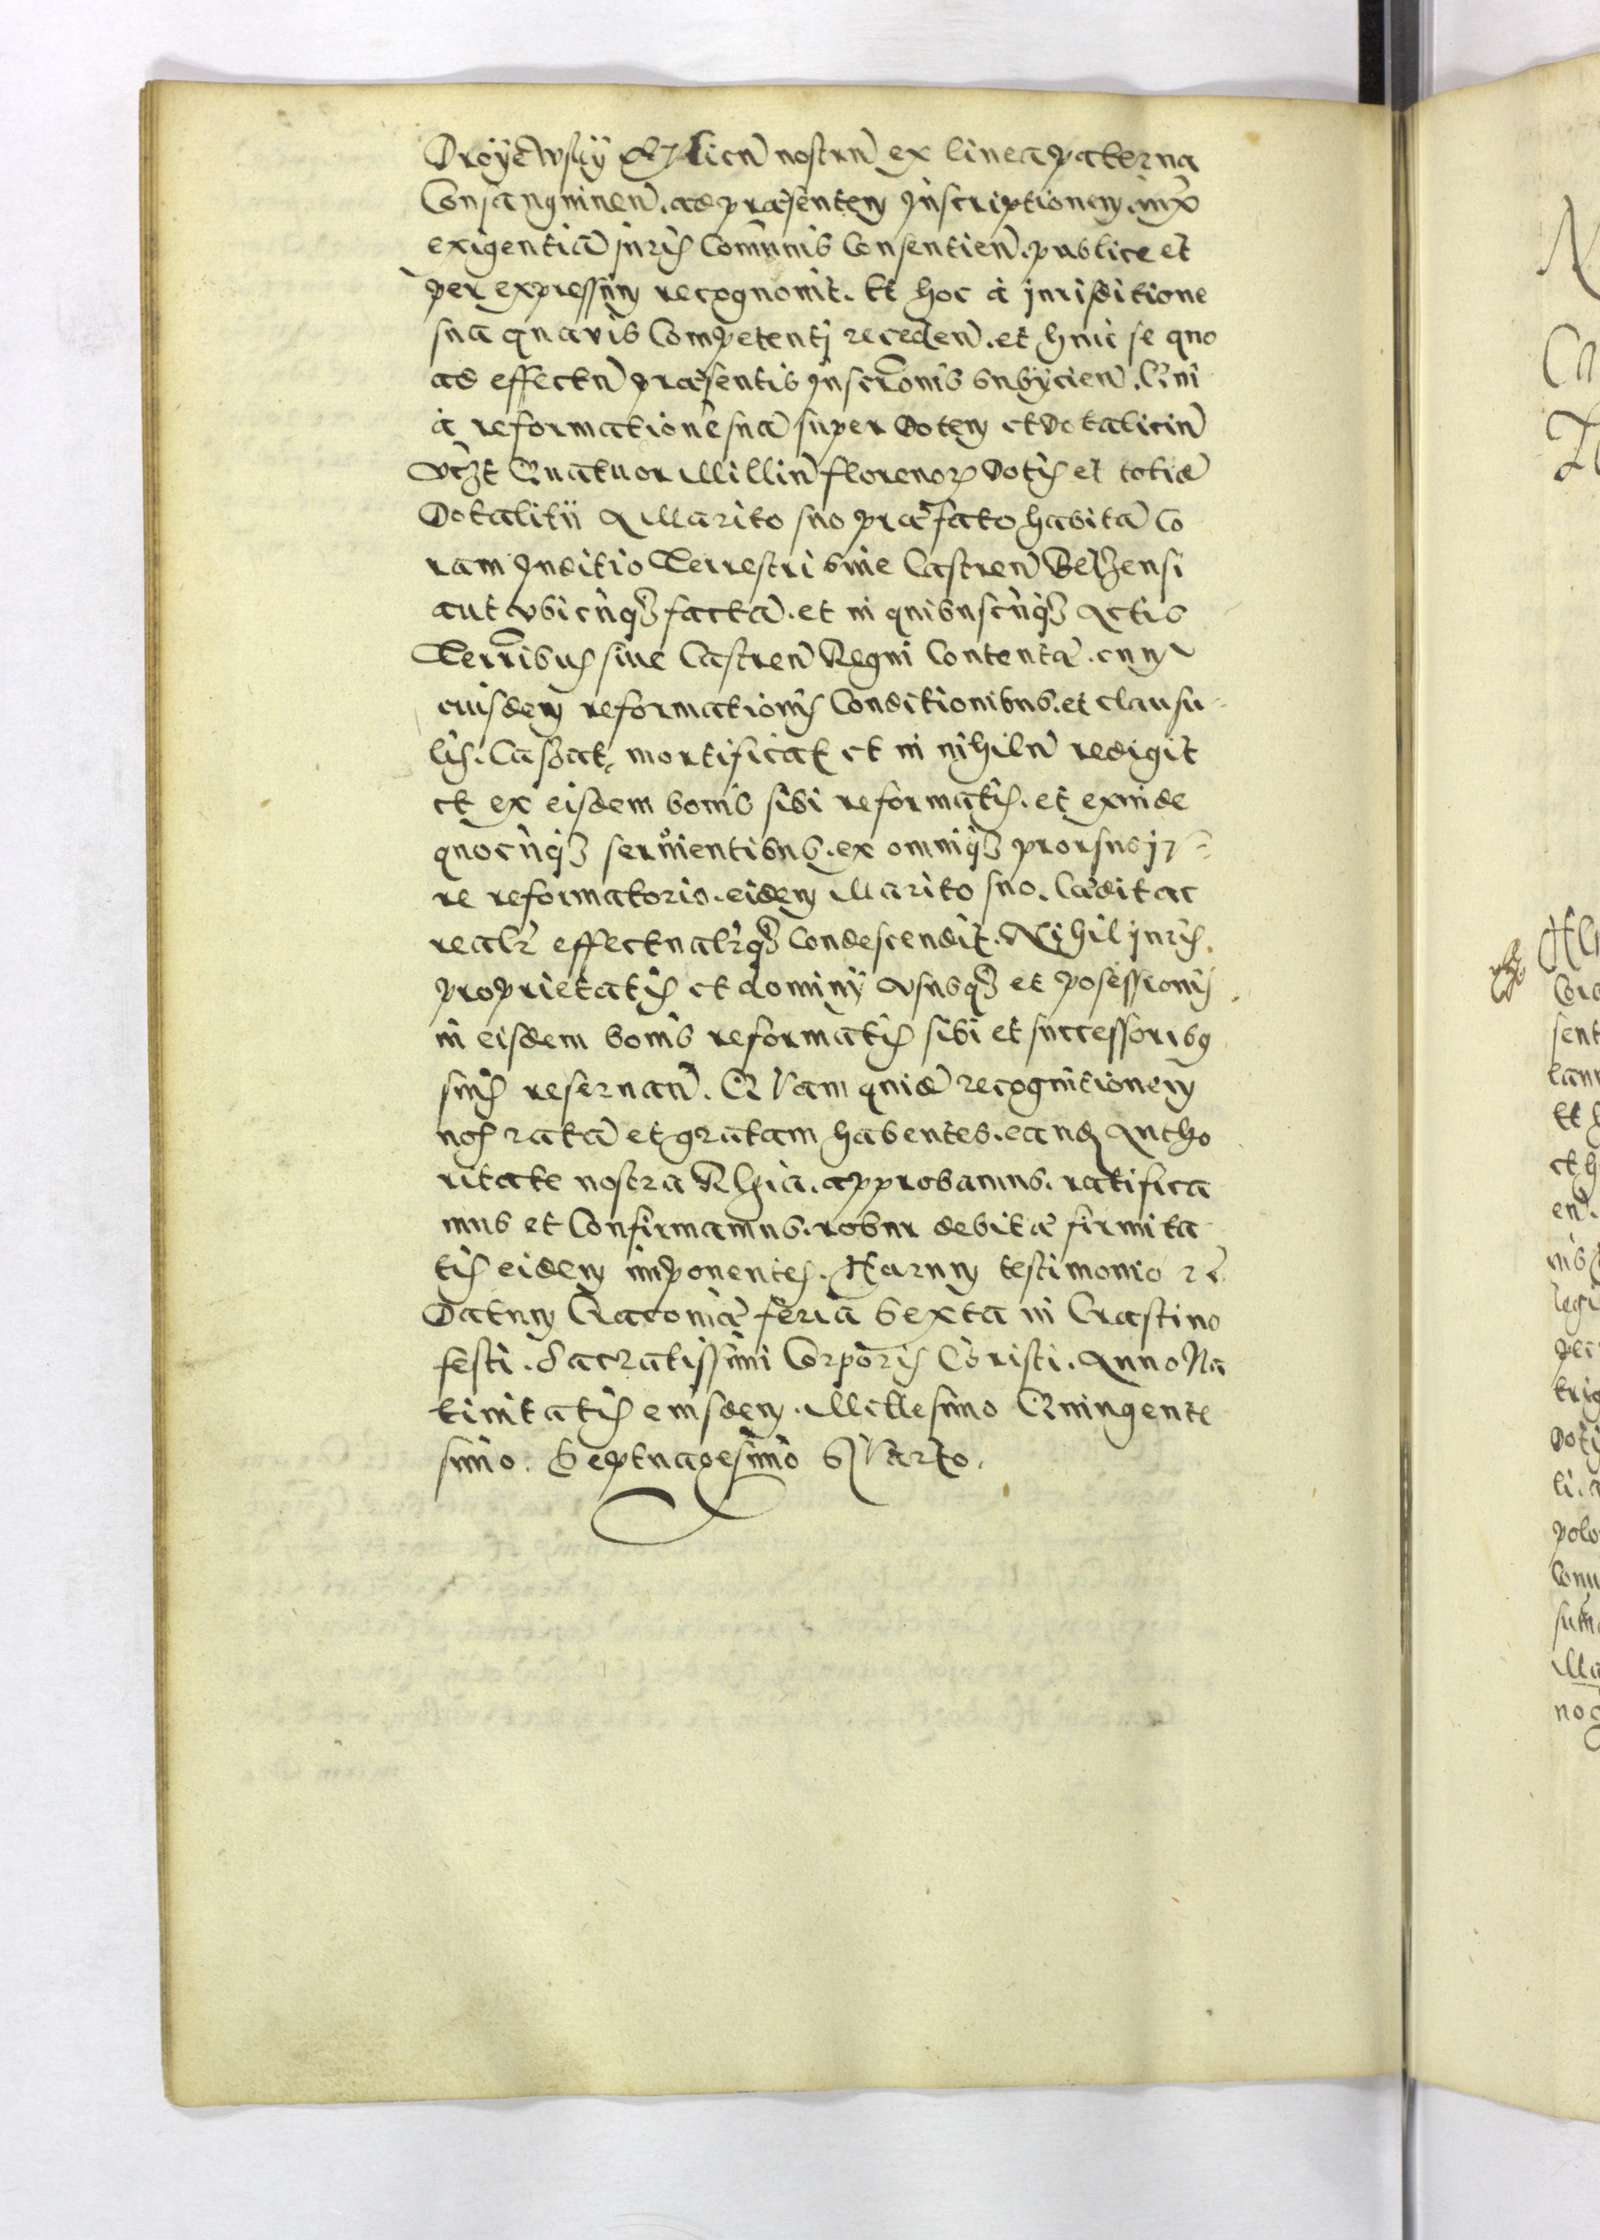 Droyewsky Aulicū nostrū ex linea paterna
Consanguineū. ad præsentem Inscriptionem. iux̄
exigentiā juris Commūnis Consentieñ. publice et
per expressum recognovit. Et hoc à jurisditione
sua quavis Competenti recedeñ. et huic se quo
ad effectū præsentis Inscrōnis subÿcieñ. Qm̄
à reformatione sua super Dotem et Dotalicium
vz̄t Quatuor Milliū florenorꝝ Dotis et totid̄
Dotalitii a Marito suo præfato habitā Co
ram Inditio Terrestri sive Castreñ Belzensi
aut ubicūqꝫ factā. et in quibuscūqꝫ Actis
Terrībus sive Castreñ Regni Contentā. cum
eiusdem reformationis Conditionibus. et clausu
lis. Cassat, mortificat et in nihilū redigit
et ex eisdem bonis sibi reformatis. et exinde
quocūqꝫ servientibus. ex omniqꝫ prorsus ju=
re reformatorio. eidem Marito suo. Cædit ac
realr̄ effectualr̄qꝫ Condescendit. Nihil juris
proprietatis et dominÿ ususqꝫ et posessionis
in eisdem bonis reformatis sibi et successoribꝰ
suis reservañ. Quam quid̄ recognitionem
nos ratā et gratam habentes. eand Autho
ritate nostra Rgia. approbamus. ratifica
mus et Confirmamus. robur debitæ firmita
tis eidem imponentes. Harum testimonio rē
Datum Cracoviæ feria Sexta in Crastino
festi. Sacratissimi Corporis Christi. Anno Na
tivitatis eiusdem. Millesimo Quingente
simo. Septuagesimo Quarto.